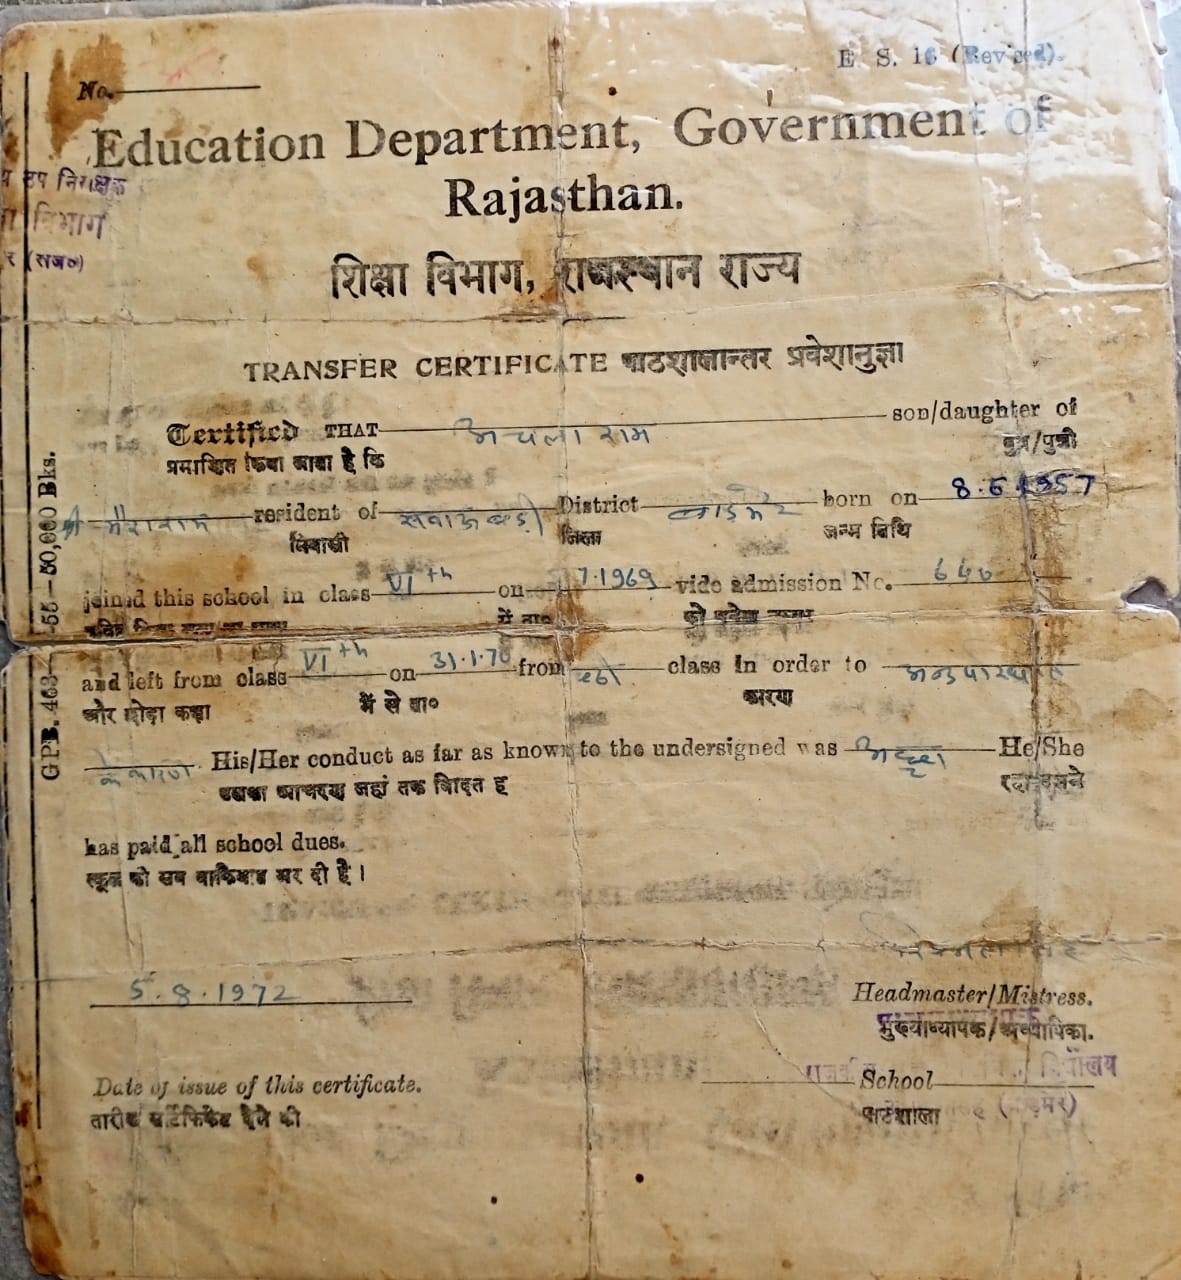 No.
E. S. 16 (Revised).
Education Department, Government of
Rajasthan.
उप निरीक्षक
विभाग
(राज०)
शिक्षा विभाग, राजस्थान राज्य
TRANSFER CERTIFICATE पाठशालान्तर प्रवेशानुज्ञा
Certified THAT अचला राम son/daughter of
प्रमाणित किया जाता है कि पुत्र/पुत्री
resident of District बाड़मेर born on 8.6.1957
निवासी जिला जन्म तिथि
joined this school in class VI th on 7.1969 vide admission No. 640
में ता०
and left from class VI th on 31.1.70 from class in order to
और छोड़ा कक्षा में से ता० कारण
के कारण His/Her conduct as far as known to the undersigned was अच्छा He/She
आचरण जहां तक विदित है
has paid all school dues.
स्कूल की सब बाकियात भर दी है।
5.8.1972
Headmaster/Mistress.
मुख्याध्यापक/अध्यापिका.
Date of issue of this certificate.
School
तारीख सर्टिफिकेट देने की
पाठशाला
GPB. 463—55—50,000 Bks.